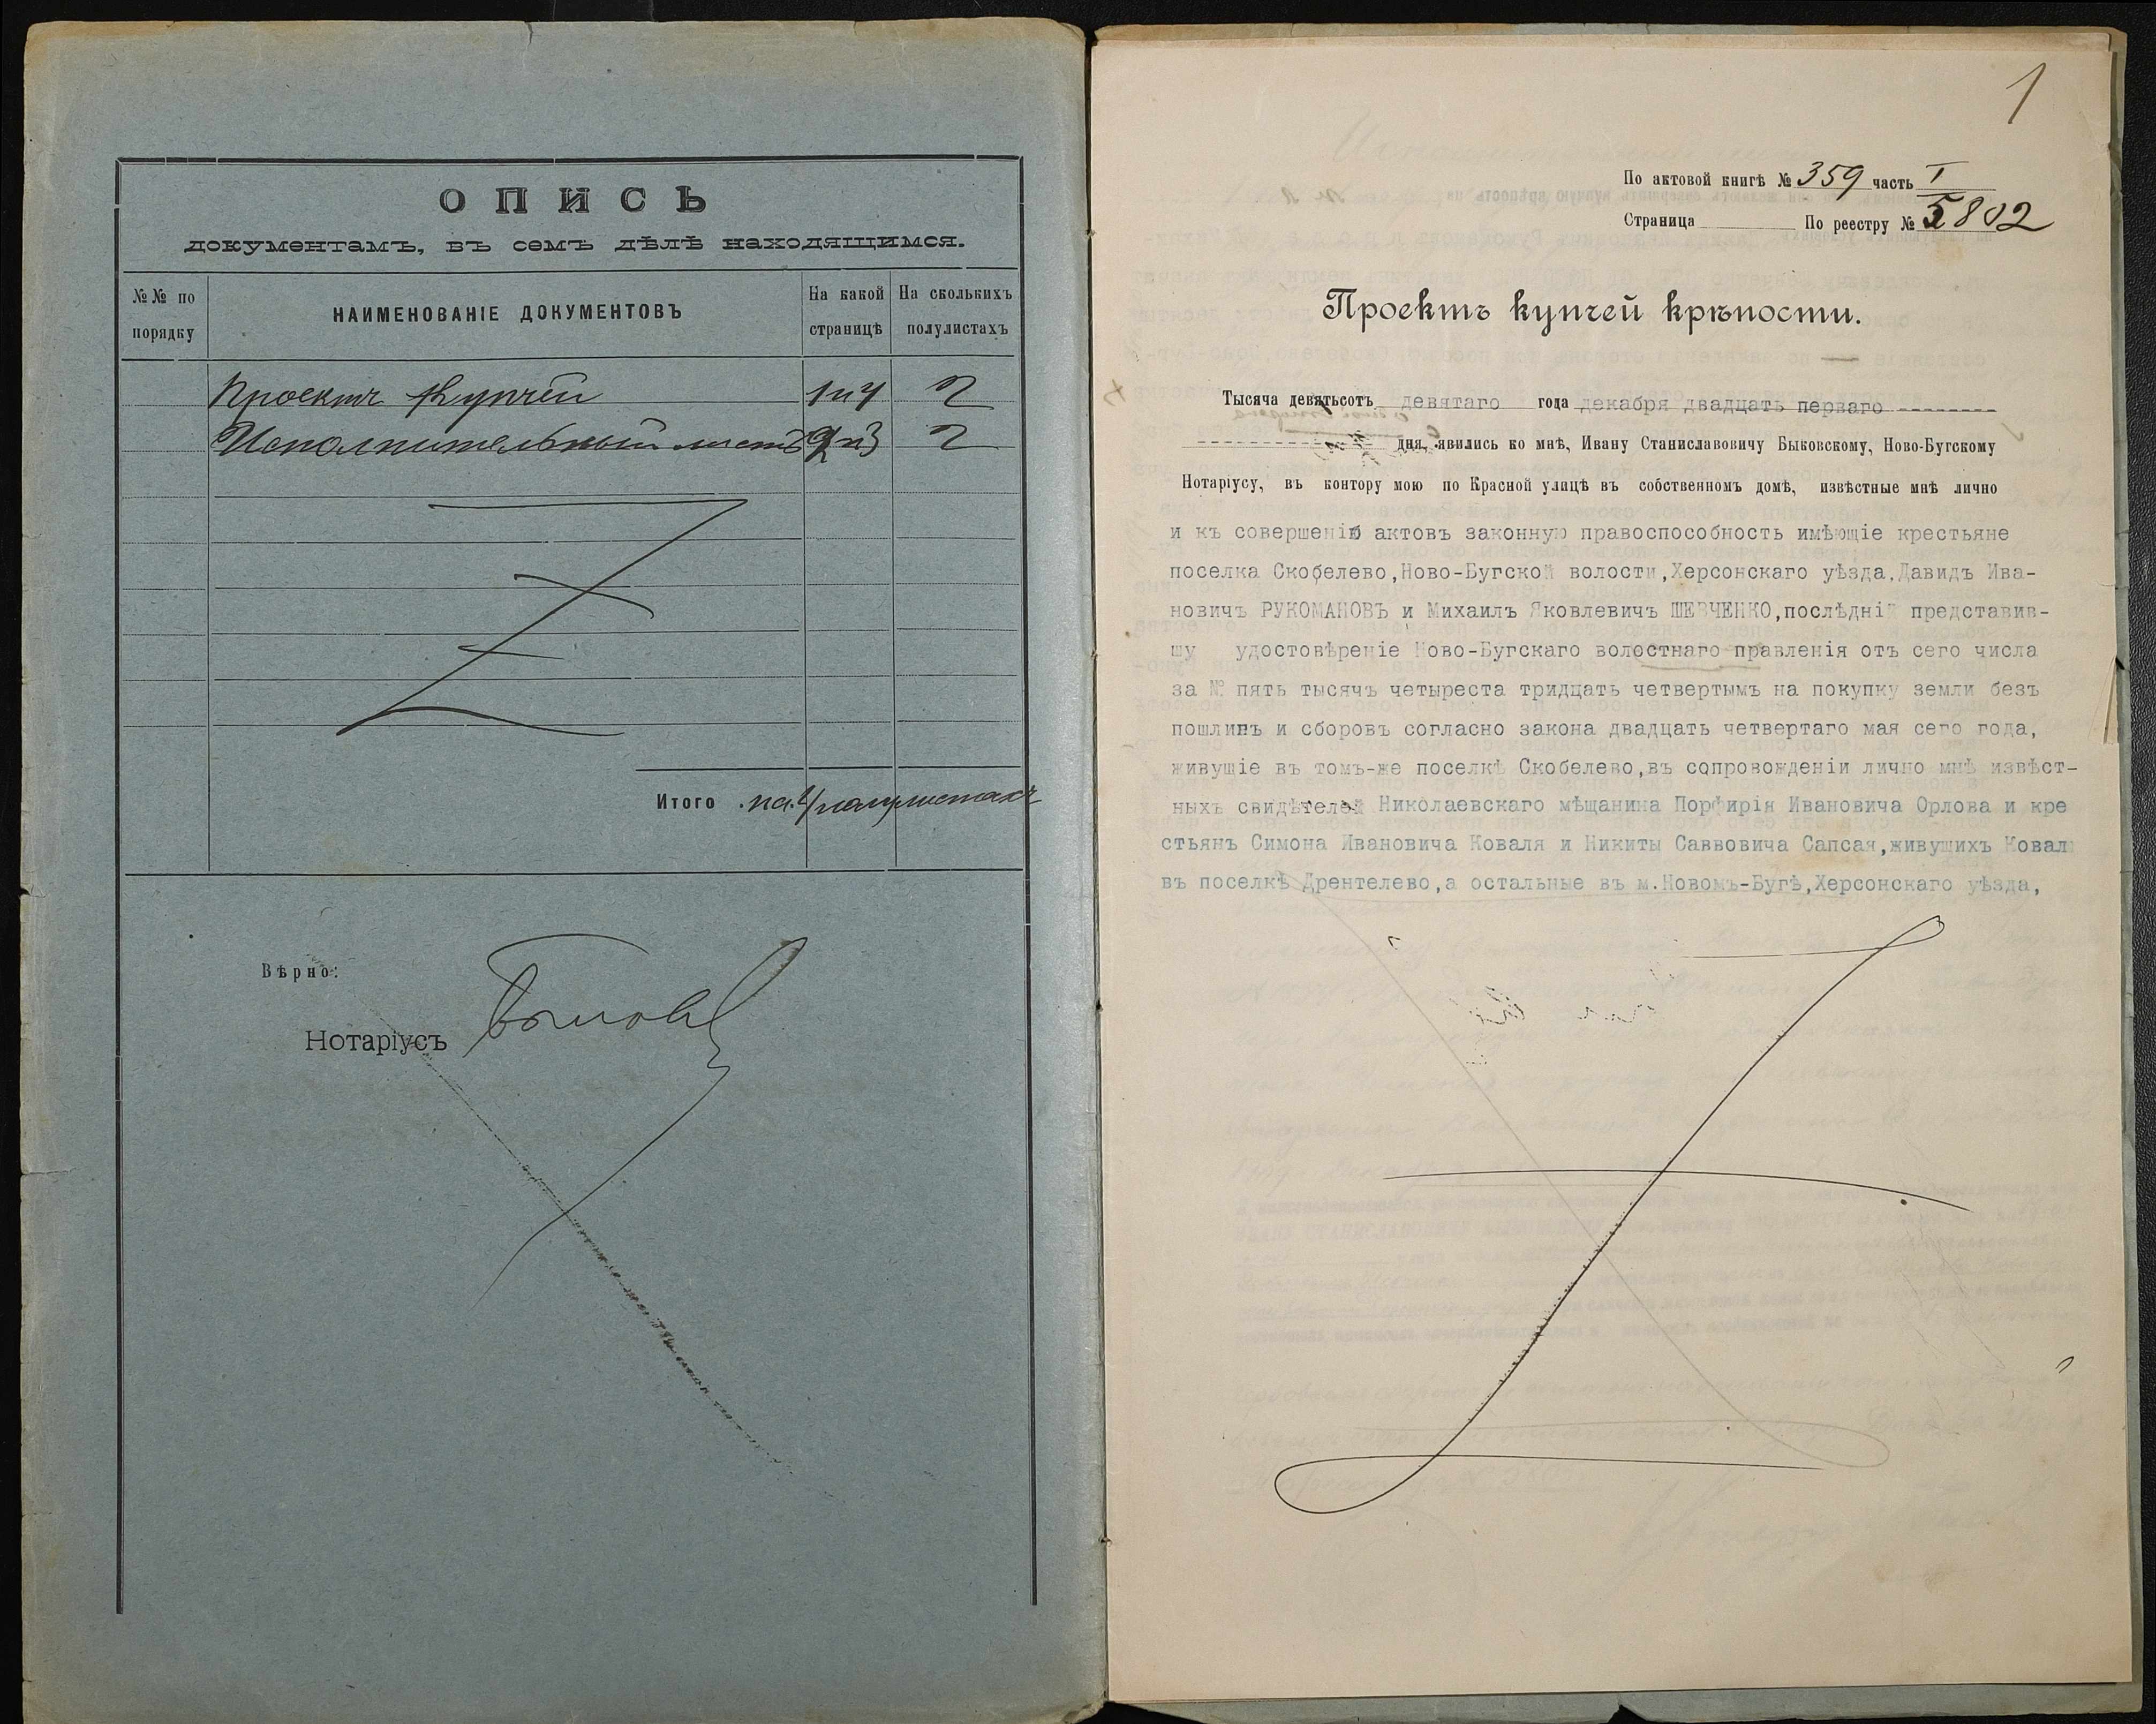 ОПИСЬ
документамъ, въ семъ дѣлѣ находящимся.
№№ по порядку
НАИМЕНОВАНІЕ ДОКУМЕНТОВЪ
На какой страницѣ
На сколькихъ полулистахъ
Проектъ Купчей 1 и 4 2
Исполнительный листъ 2 и 3 2
Итого на 4 полулистахъ
Вѣрно:
Нотаріусъ
1
По актовой книгѣ № 359 часть I
Страница По реестру № 5802
Проектъ купчей крѣпости.
Тысяча девятьсотъ девятаго года декабря двадцать перваго
дня, явились ко мнѣ, Ивану Станиславовичу Быковскому, Ново-Бугскому
Нотаріусу, въ контору мою по Красной улицѣ въ собственномъ домѣ, извѣстные мнѣ лично
и къ совершенію актовъ законную правоспособность имѣющіе крестьяне
поселка Скобелево,Ново-Бугской волости,Херсонскаго уѣзда,Давидъ Ива-
новичъ РУКОМАНОВЪ и Михаилъ Яковлевичъ ШЕВЧЕНКО,послѣдній представив-
шу удостовѣреніе Ново-Бугскаго волостнаго правленія отъ сего числа
за № пять тысячъ четыреста тридцать четвертымъ на покупку земли безъ
пошлинъ и сборовъ согласно закона двадцать четвертаго мая сего года,
живущіе въ томъ-же поселкѣ Скобелево,въ сопровожденіи лично мнѣ извѣст-
ныхъ свидѣтелей Николаевскаго мѣщанина Порфирія Ивановича Орлова и кре
стьянъ Симона Ивановича Коваля и Никиты Саввовича Сапсая,живущихъ Коваль
въ поселкѣ Дрентелево,а остальные въ м.Новомъ-Бугѣ,Херсонскаго уѣзда,